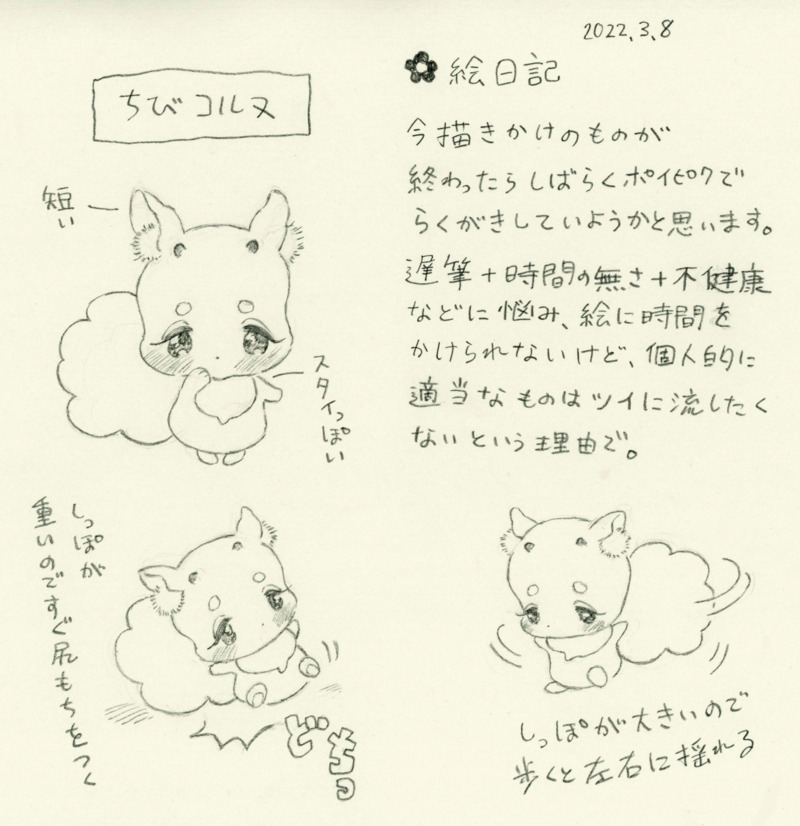 2022.3.8
絵日記
今描きかけのものが
終わったらしばらくポイピクで
らくがきしていようかと思います。
遅筆+時間の無さ+不健康
などに悩み、絵に時間を
かけられないけど、個人的に
適当なものはツイに流したく
ないという理由で。
ちびコルヌ
短い
スタイっぽい
しっぽが
重いのですぐ尻もちをつく
どちっ
しっぽが大きいので
歩くと左右に揺れる